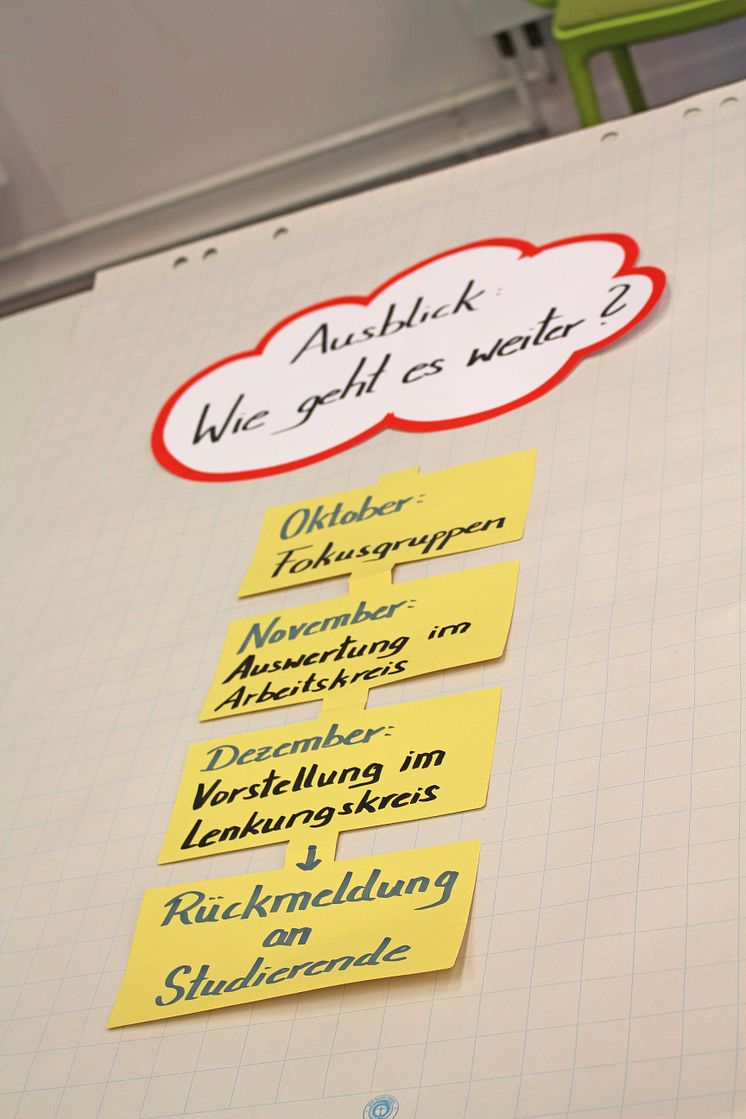 Ausblick:
Wie geht es weiter?
Oktober:
Fokusgruppen
November:
Auswertung im
Arbeitskreis
Dezember:
Vorstellung im
Lenkungskreis
Rückmeldung
an
Studierende